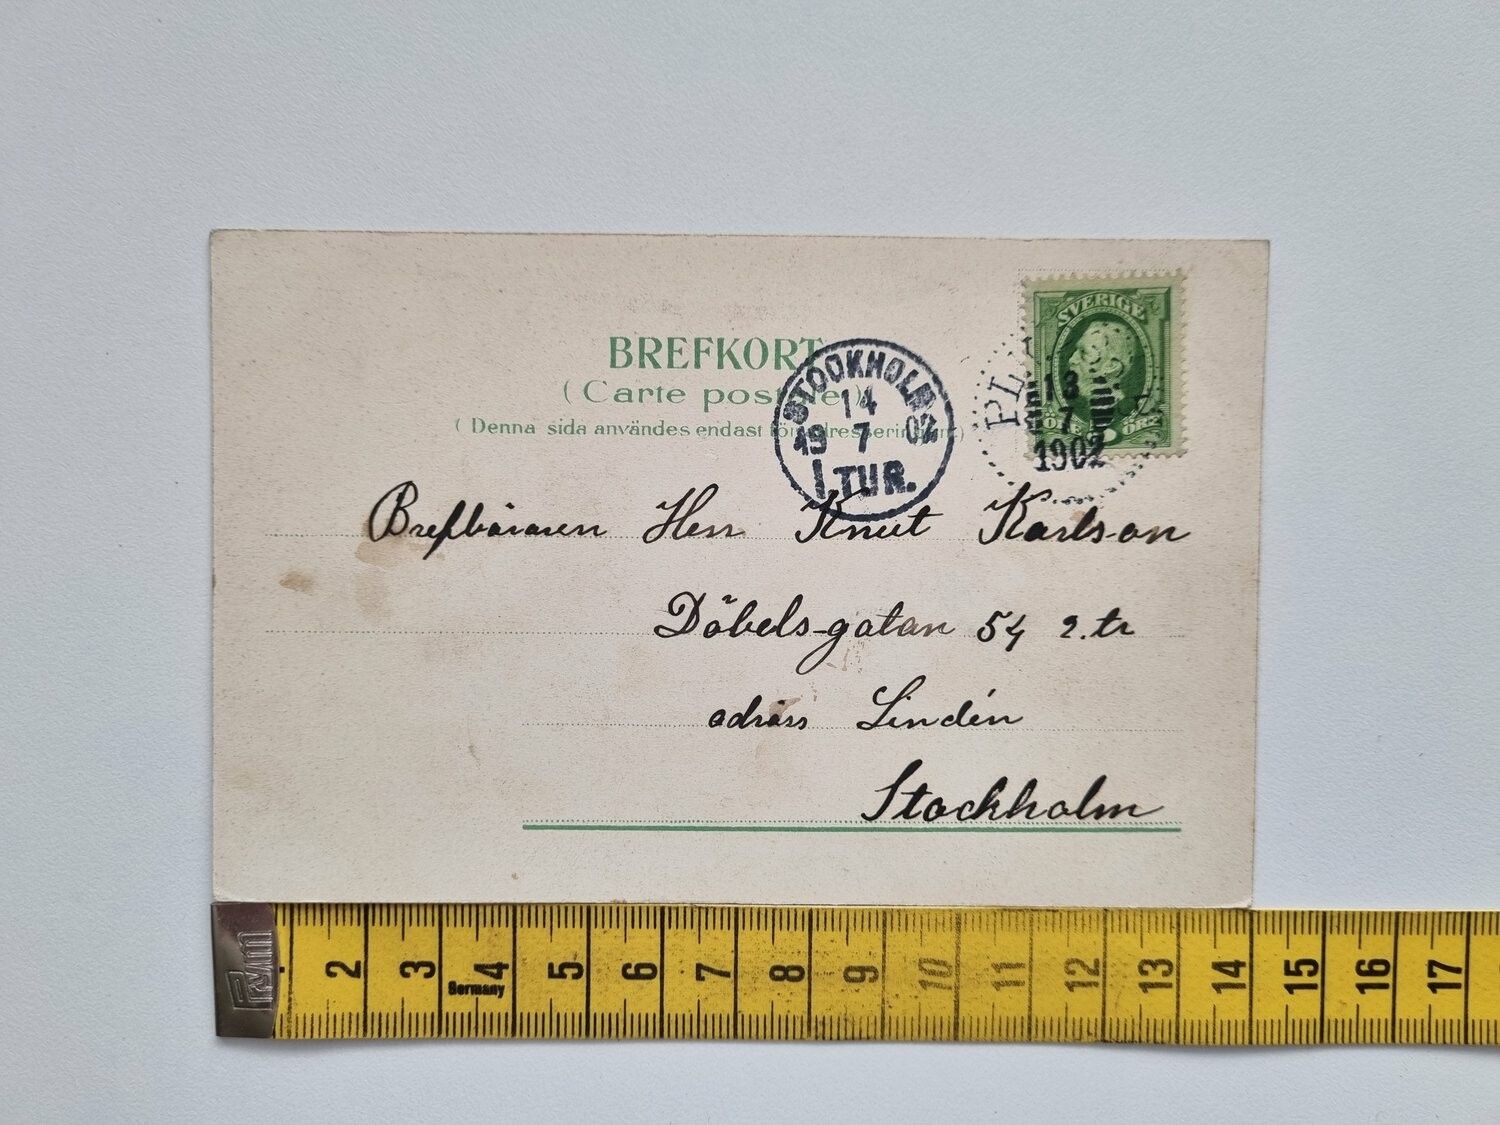 SVERIGE
BREFKORT
(Carte postale)
(Denna sida användes endast för adressering.)
STOCKHOLM 2
14
19 7 02
1 TUR.
13
7
1902
Brefbäraren Herr Knut Karlson
Döbels-gatan 54 2. tr
adräss Lindén
Stockholm
2 3 4 5 6 7 8 9 10 11 12 13 14 15 16 17
Germany
Prym